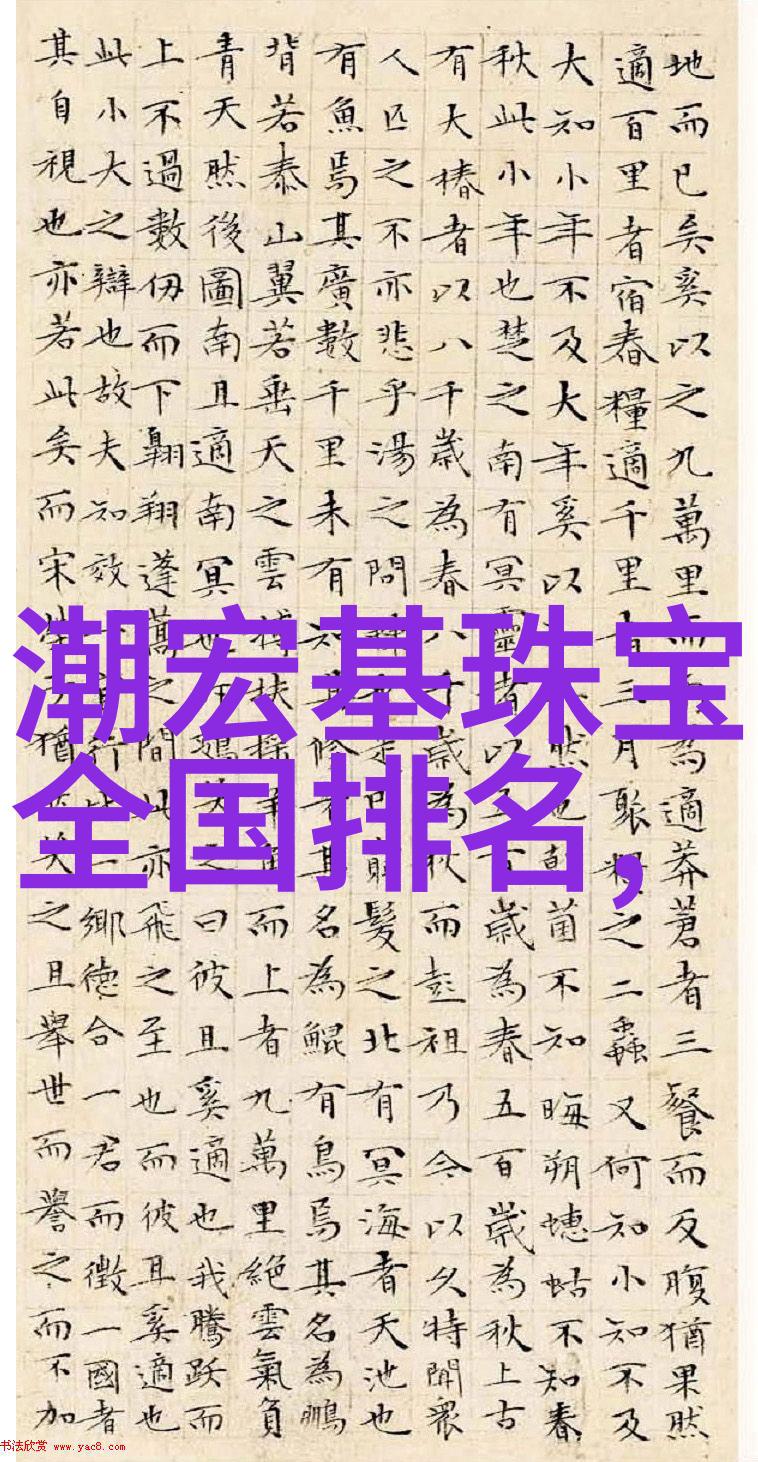 地而已矣奚以之九萬里而為適莽蒼者三餐而反腹猶果然
適百里者宿舂糧適千里者三月聚糧之二蟲又何知小知不及
大知小年不及大年奚以然也菌不知晦朔蟪蛄不知春
秋此小年也楚之南有冥靈者以五百歲為春五百歲為秋上古
有大椿者以八千歲為春八千歲為秋而彭祖乃今以久特聞眾
人匹之不亦悲乎湯之問是已髮之北有冥海者天池也
有魚焉其廣數千里未有知其修者其名為鯤有鳥焉其名為鵬
背若泰山翼若垂天之雲摶扶搖羊角而上者九萬里絕雲氣負
青天然後圖南且適南冥也笑之曰彼且奚適也我騰躍而
上不過數仞而下翱翔蓬蒿之間此亦飛之至也而彼且奚適也
此小大之辯也故夫知效一官行比一鄉德合一君而徵一國者
其自視也亦若此矣而宋榮子猶然笑之且舉世而譽之而不加
潮宏基珠宝
全国排名,
书法欣赏 www.yac8.com